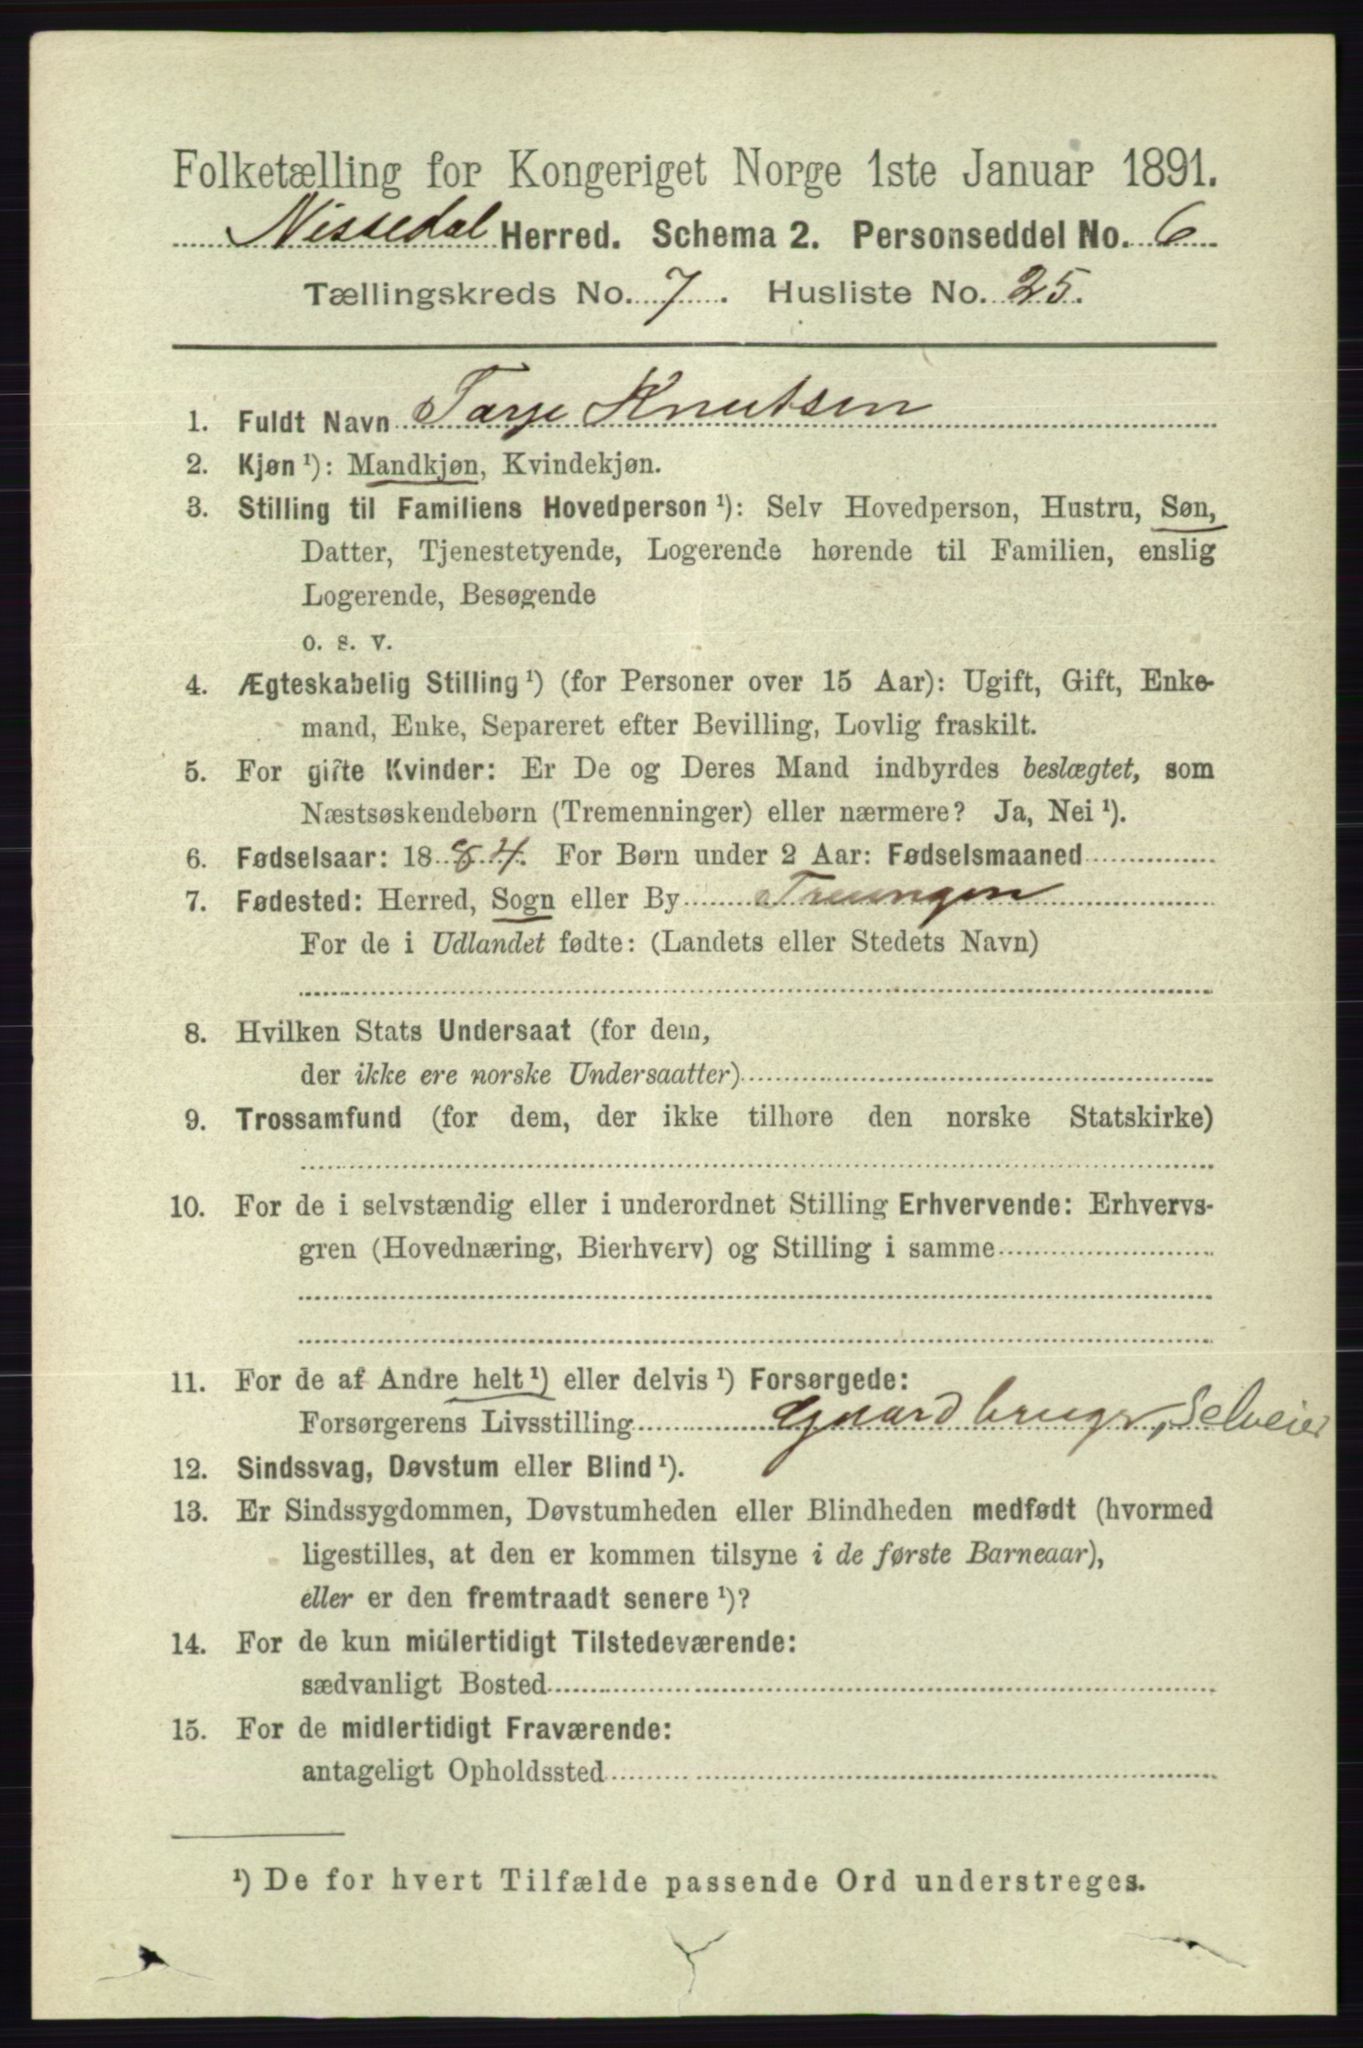 Folketælling for Kongeriget Norge 1ste Januar 1891.
Nissedal Herred. Schema 2. Personseddel No. 6
Tællingskreds No. 7. Husliste No. 25.
1. Fuldt Navn Tarje Knutsen
2. Kjøn ¹): Mandkjøn, Kvindekjøn.
3. Stilling til Familiens Hovedperson ¹): Selv Hovedperson, Hustru, Søn,
Datter, Tjenestetyende, Logerende hørende til Familien, enslig
Logerende, Besøgende
o. s. v.
4. Ægteskabelig Stilling ¹) (for Personer over 15 Aar): Ugift, Gift, Enke-
mand, Enke, Separeret efter Bevilling, Lovlig fraskilt.
5. For gifte Kvinder: Er De og Deres Mand indbyrdes beslægtet, som
Næstsøskendebørn (Tremenninger) eller nærmere? Ja, Nei ¹).
6. Fødselsaar: 1884. For Børn under 2 Aar: Fødselsmaaned
7. Fødested: Herred, Sogn eller By Treungen
For de i Udlandet fødte: (Landets eller Stedets Navn)
8. Hvilken Stats Undersaat (for dem,
der ikke ere norske Undersaatter)
9. Trossamfund (for dem, der ikke tilhøre den norske Statskirke)
10. For de i selvstændig eller i underordnet Stilling Erhvervende: Erhvervs-
gren (Hovednæring, Bierhverv) og Stilling i samme
11. For de af Andre helt ¹) eller delvis ¹) Forsørgede:
Forsørgerens Livsstilling Gaardbruger, Selveier
12. Sindssvag, Døvstum eller Blind ¹).
13. Er Sindssygdommen, Døvstumheden eller Blindheden medfødt (hvormed
ligestilles, at den er kommen tilsyne i de første Barneaar),
eller er den fremtraadt senere ¹)?
14. For de kun midlertidigt Tilstedeværende:
sædvanligt Bosted
15. For de midlertidigt Fraværende:
antageligt Opholdssted
¹) De for hvert Tilfælde passende Ord understreges.